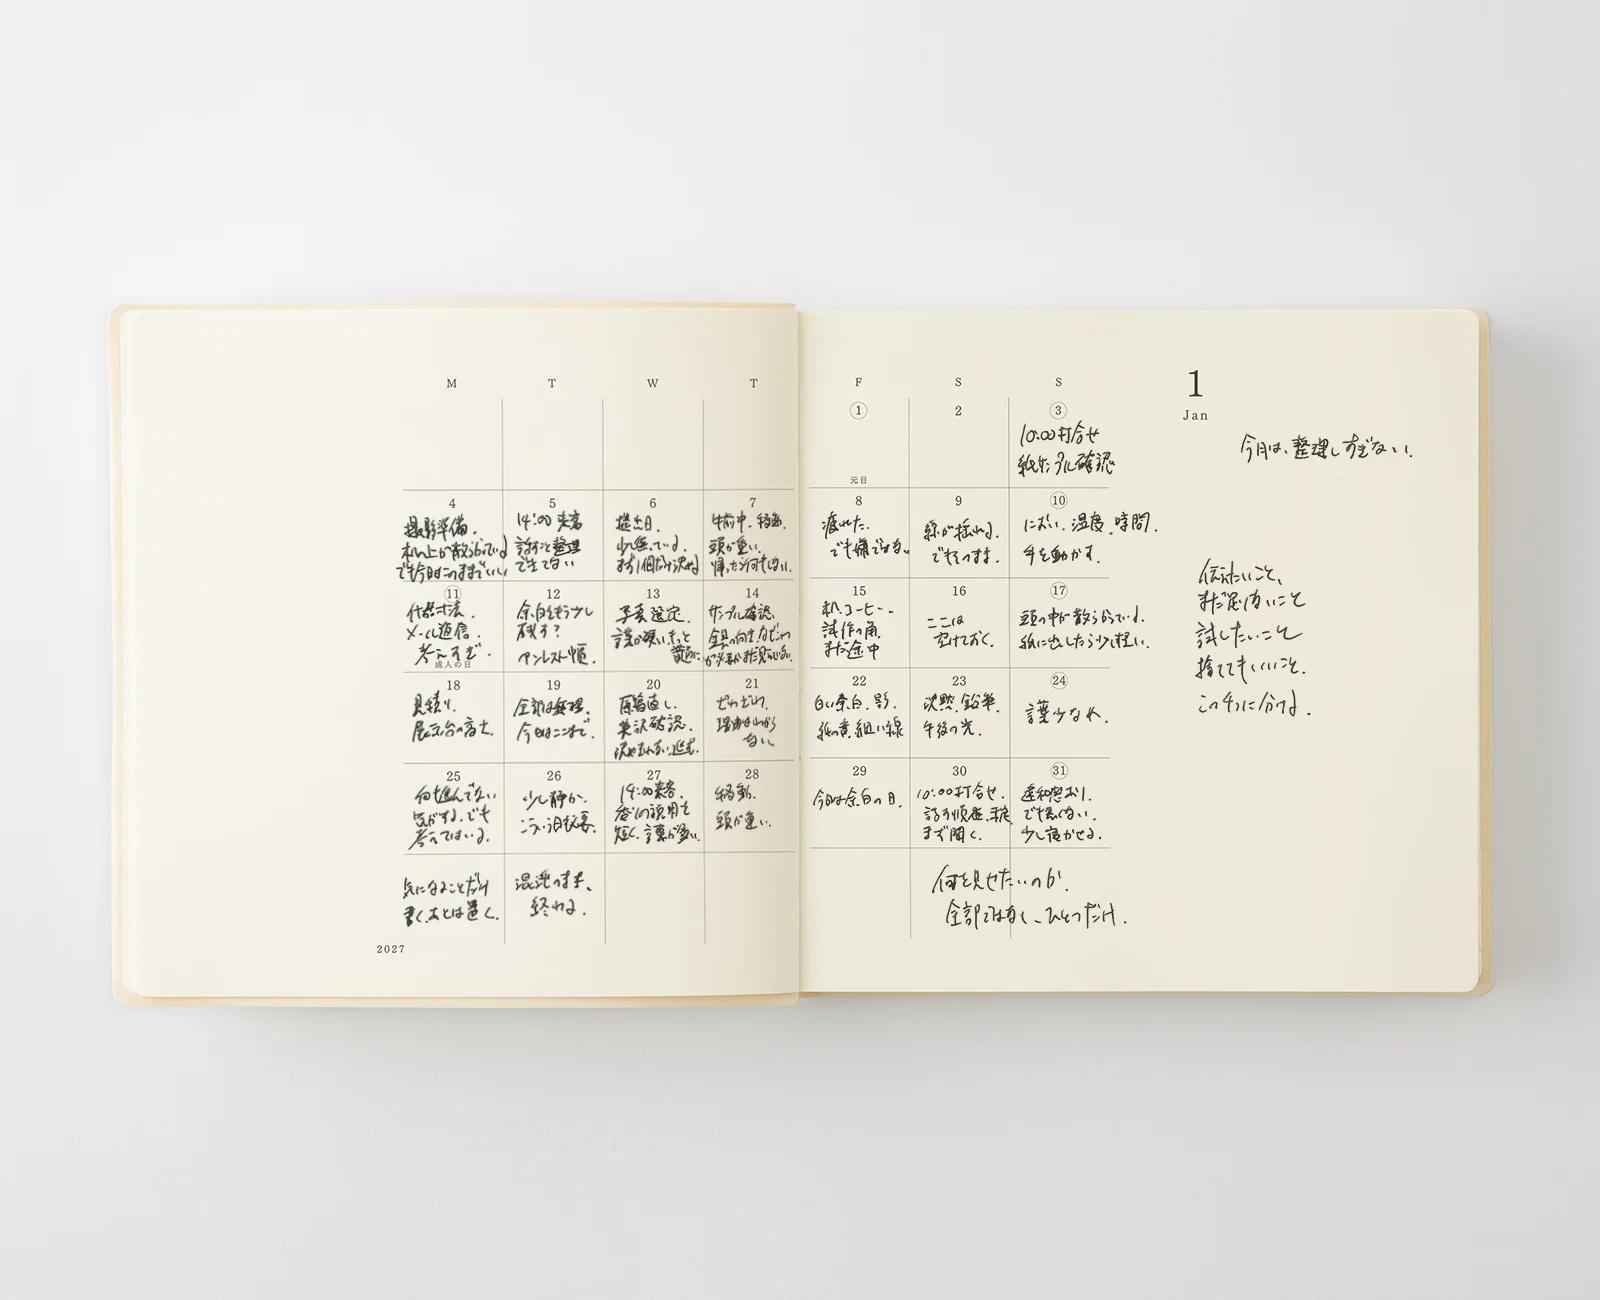 M T W T F S S
1
Jan
今月は、整理しすぎない。
1
元日
2
3
10:00打合せ
紙サンプル確認
4
撮影準備。
机の上が散らかっている
でも今日はこのままでいい
5
14:00 来客
話すこと整理
できてない
6
提出日。
少し焦っている。
まず1個だけ決める
7
午前中、移動。
頭が重い。
帰ったら何もしない。
8
疲れた。
でも嫌ではない。
9
線が揺れる。
でもそのまま。
10
におい、温度、時間。
手を動かす。
11
メール返信。
考えすぎ。
成人の日
12
余白をもう少し
残す?
13
写真選定。
14
サンプル確認。
15
机、コーヒー、
試作の角。
まだ途中
16
ここは
空けておく。
17
頭の中が散らかっている。
紙に出したら少し軽い。
18
見積り。
展示台の高さ。
19
全部は無理。
今日はここまで。
20
光沢確認。
21
ざわざわ。
理由はわから
ない。
22
白い余白、影、
紙の黄、細い線
23
沈黙、鉛筆、
午後の光。
24
言葉少なめ。
25
何も進んでない
気がする。でも
考えてはいる。
26
少し静か。
こういう日も必要。
27
14:00来客。
短く。言葉が多い。
28
移動。
頭が重い。
29
今日は余白の日。
30
10:00打合せ。
まず聞く。
31
違和感あり。
でも悪くない。
少し寝かせる。
伝えたいこと、
まだ足りないこと
試したいこと
捨ててもいいこと。
この4つに分ける。
気になることだけ
書く。あとは置く。
混沌のまま、
終わる。
何を見せたいのか。
全部ではなく、ひとつだけ。
2027